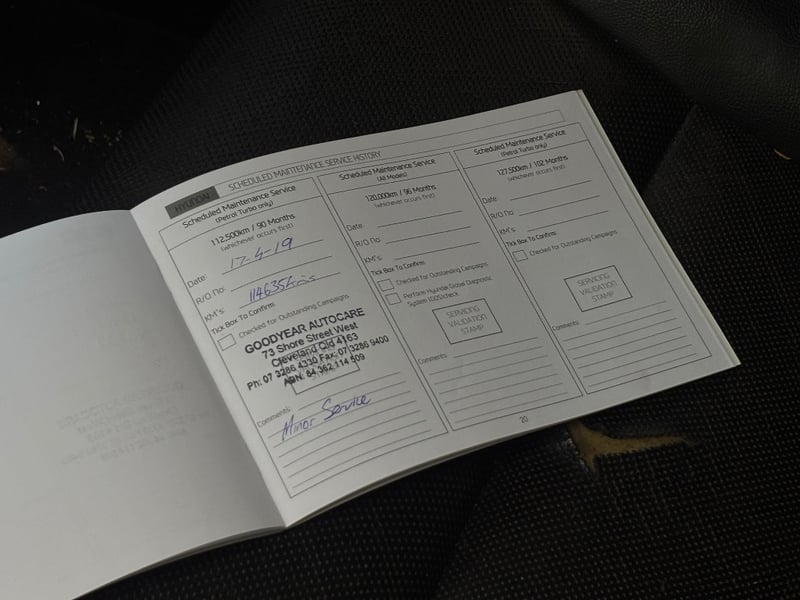 HYUNDAI SCHEDULED MAINTENANCE SERVICE HISTORY
Scheduled Maintenance Service
(Petrol Turbo only)
112,500km / 90 Months
(whichever occurs first)
Date: 17-4-19
R/O No:
KM's: 114635kms
Tick Box To Confirm
Checked for Outstanding Campaigns
GOODYEAR AUTOCARE
73 Shore Street West
Cleveland Qld 4163
Ph: 07 3286 4330 Fax: 07 3286 9400
ABN: 84 362 114 509
Comments:
Minor Service
Scheduled Maintenance Service
(All Models)
120,000km / 96 Months
(whichever occurs first)
Date:
R/O No:
KM's:
Tick Box To Confirm
Checked for Outstanding Campaigns
Perform Hyundai Global Diagnostic
System (GDS) check
SERVICING
VALIDATION
STAMP
Comments:
Scheduled Maintenance Service
(Petrol Turbo only)
127,500km / 102 Months
(whichever occurs first)
Date:
R/O No:
KM's:
Tick Box To Confirm
Checked for Outstanding Campaigns
SERVICING
VALIDATION
STAMP
Comments:
20